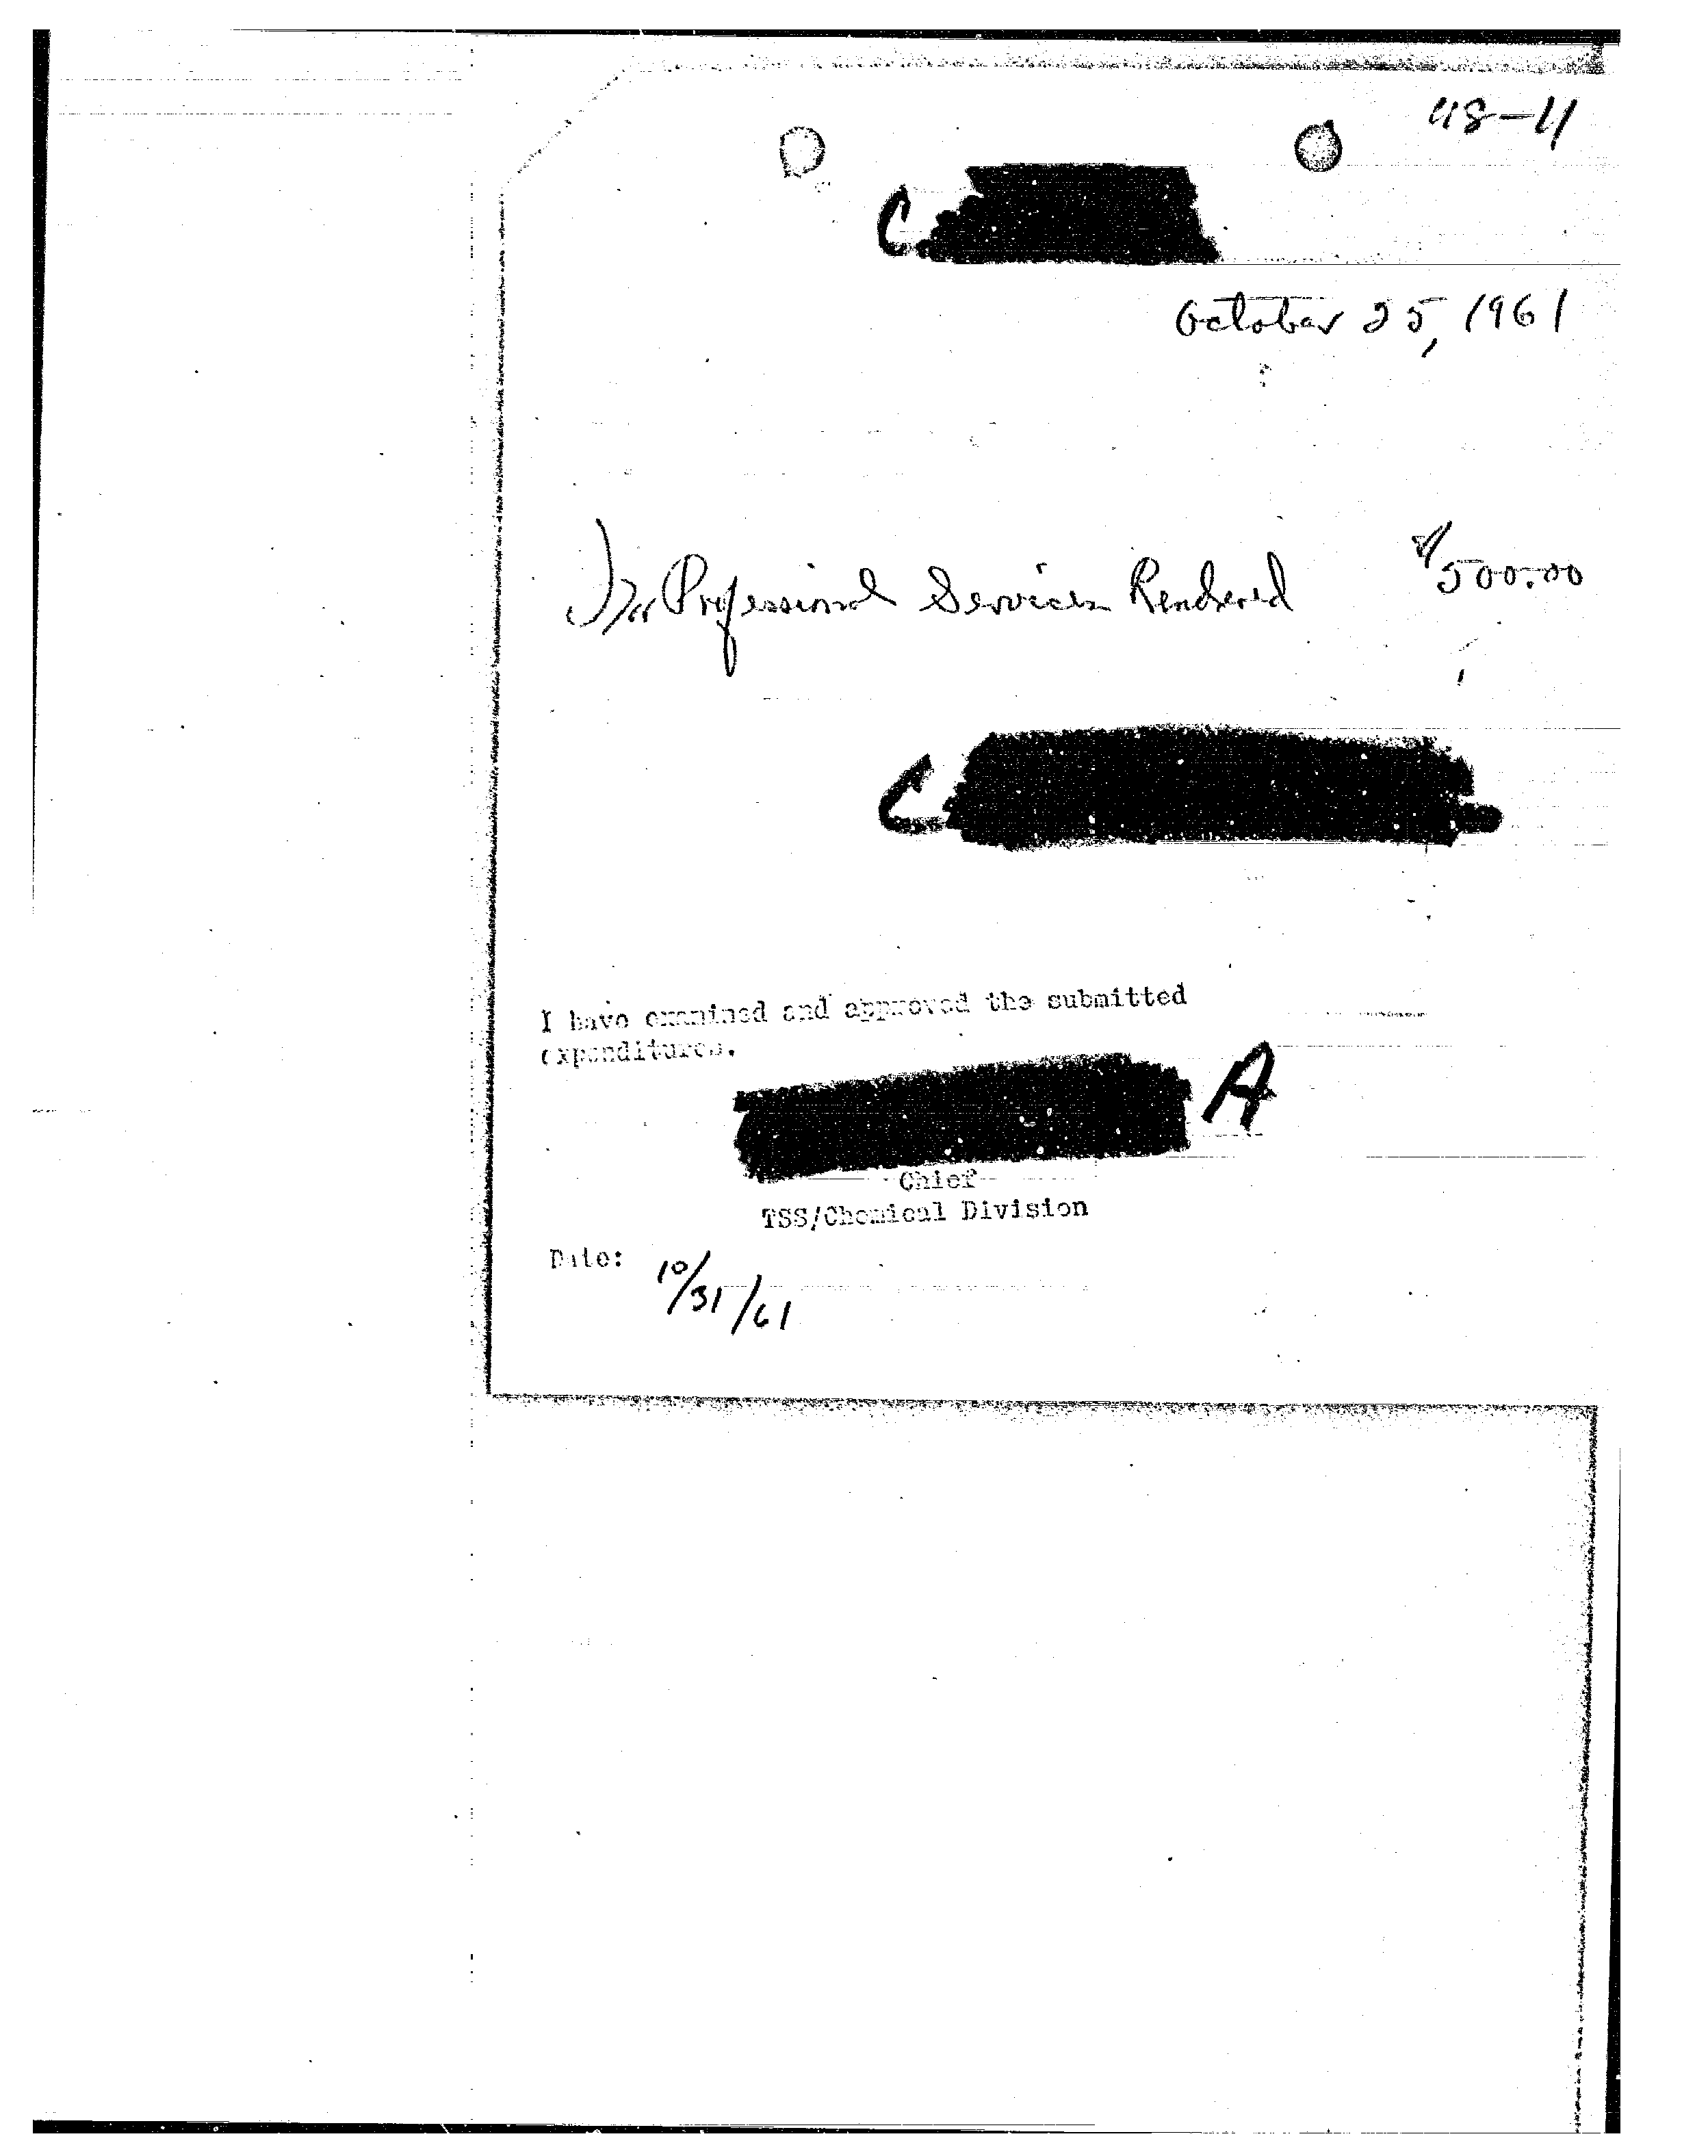 48-11
C
October 25, 1961
For Professional Services Rendered $500.00
C
I have examined and approved the submitted
expenditures.
A
Chief
TSS/Chemical Division
Date: 10/31/61